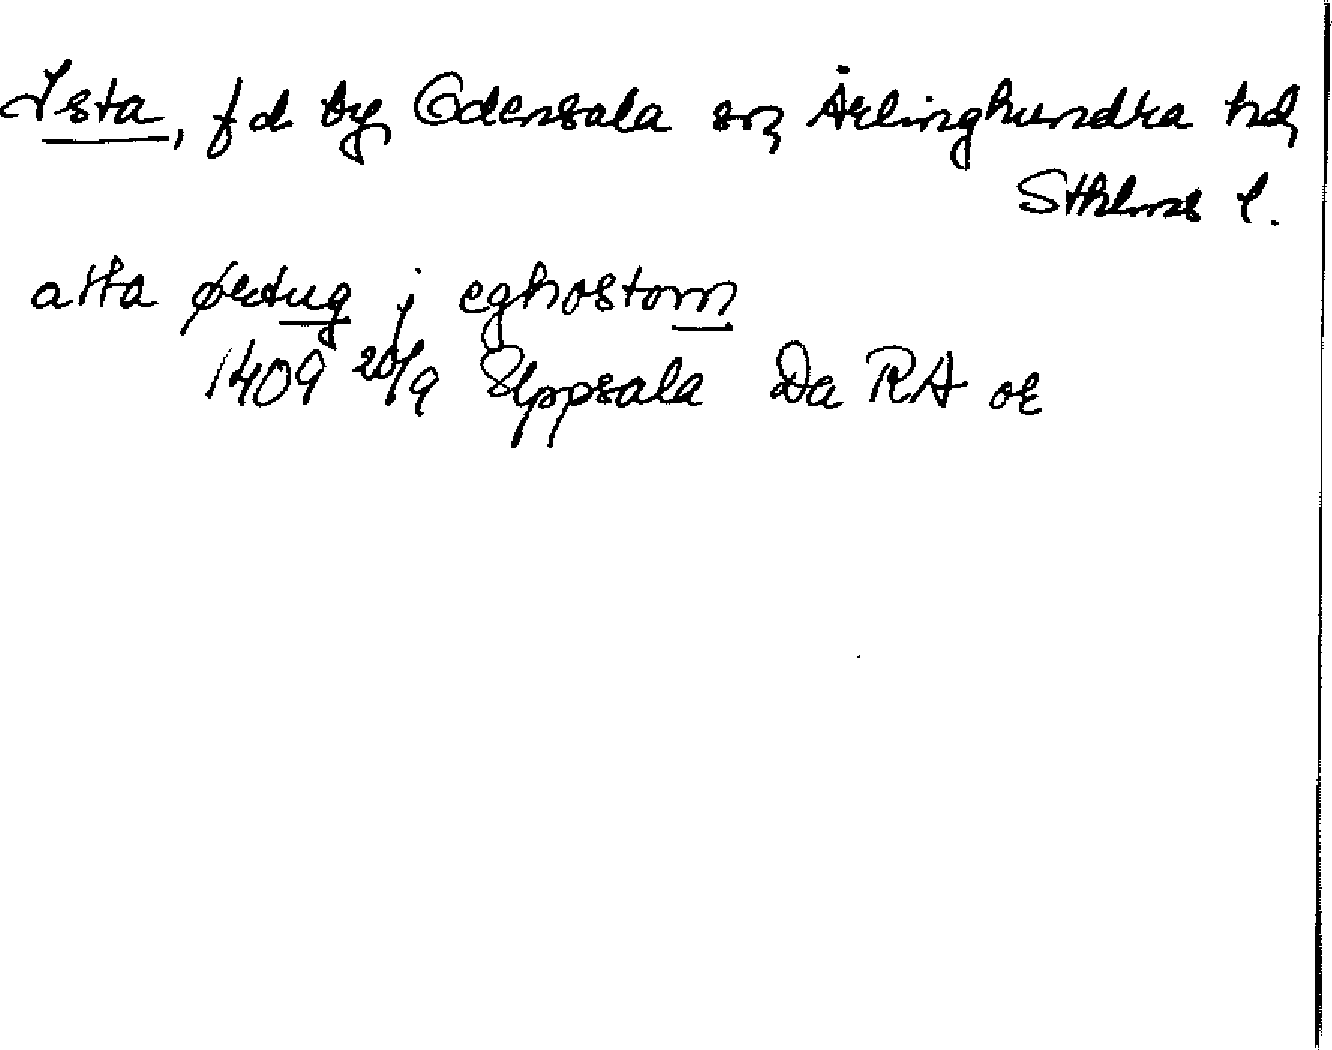 Ista, fd by, Odensala sn, Ärlinghundra hd,
Sthlms l.
atta ørtug j eghostom
1409 20/9 Uppsala Da RA or